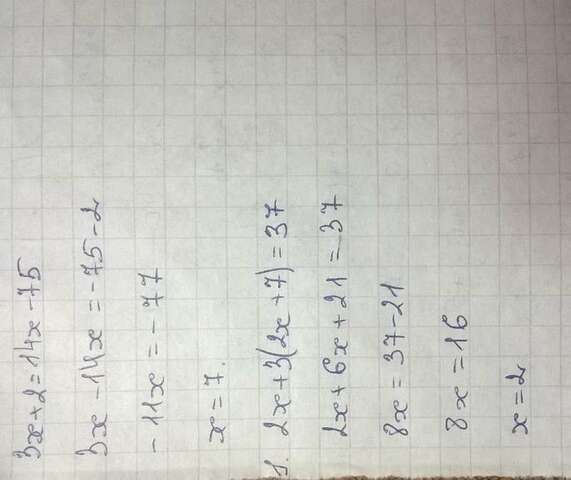 3x+2=14x-75
3x-14x=-75-2
-11x=-77
x=7.
1. 2x+3(2x+7)=37
2x+6x+21=37
8x=37-21
8x=16
x=2